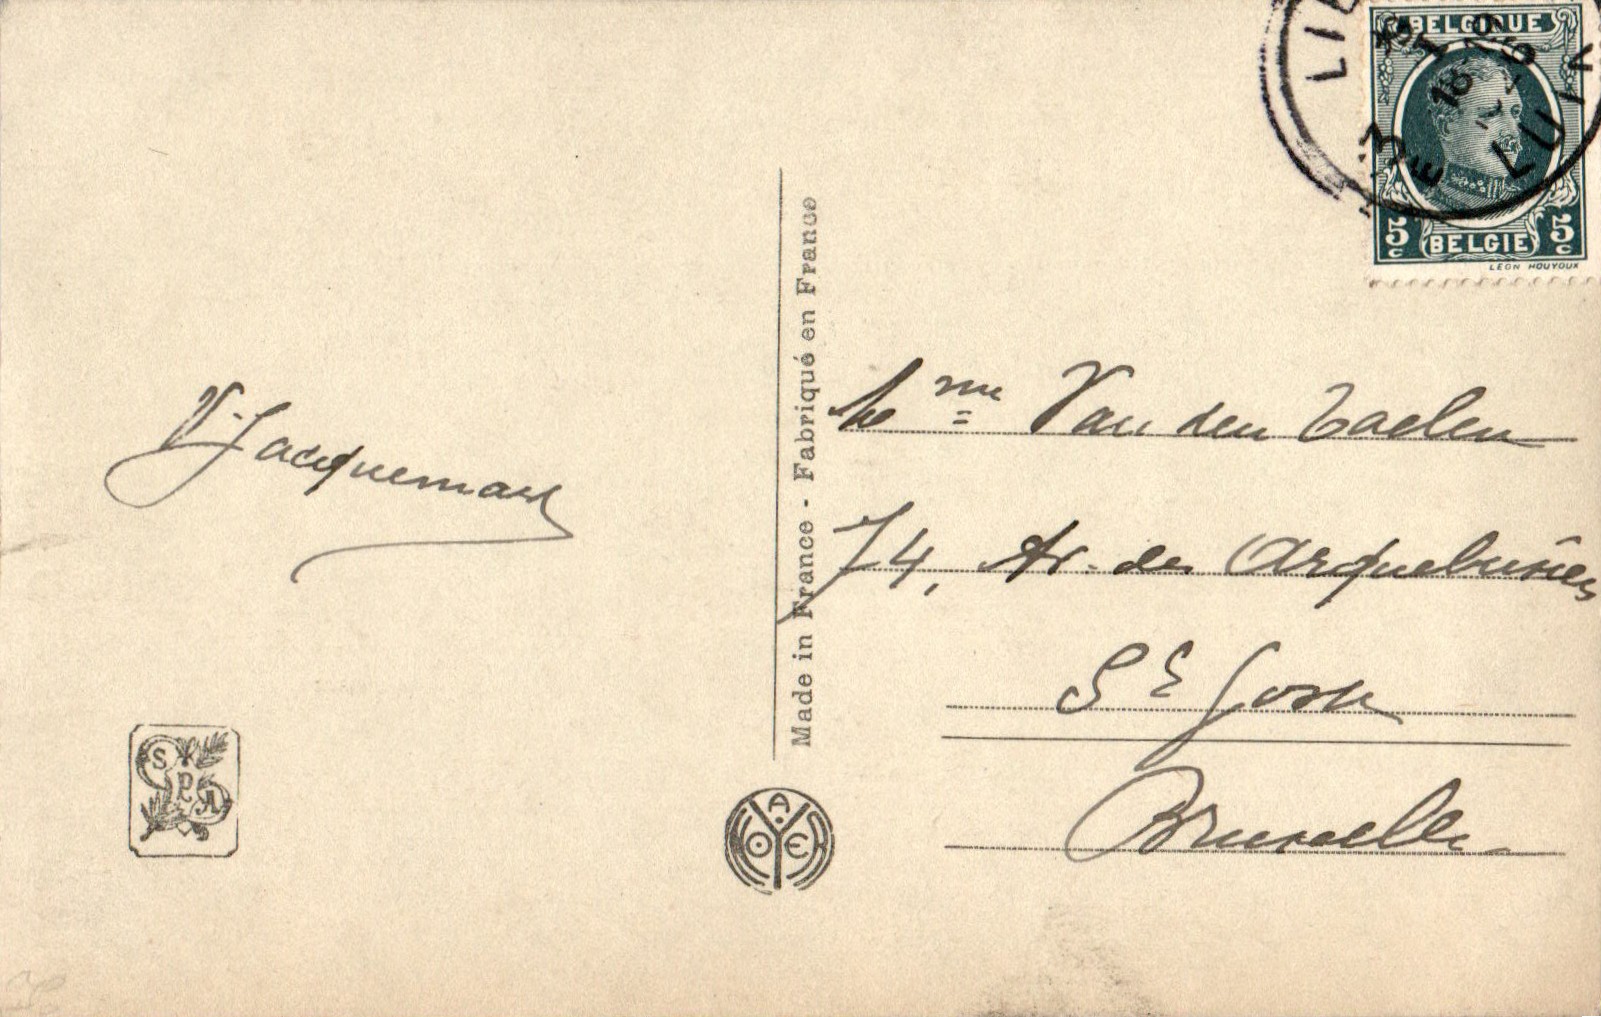 BELGIQUE
5c BELGIE 5c
LEON HOUYOUX
LIE E LUIK
V. Jacquemart
Made in France - Fabriqué en France
Mme Van den Taelen
74, Av. des Arquebusiers
St Josse
Bruxelles
S P A
A NOYER